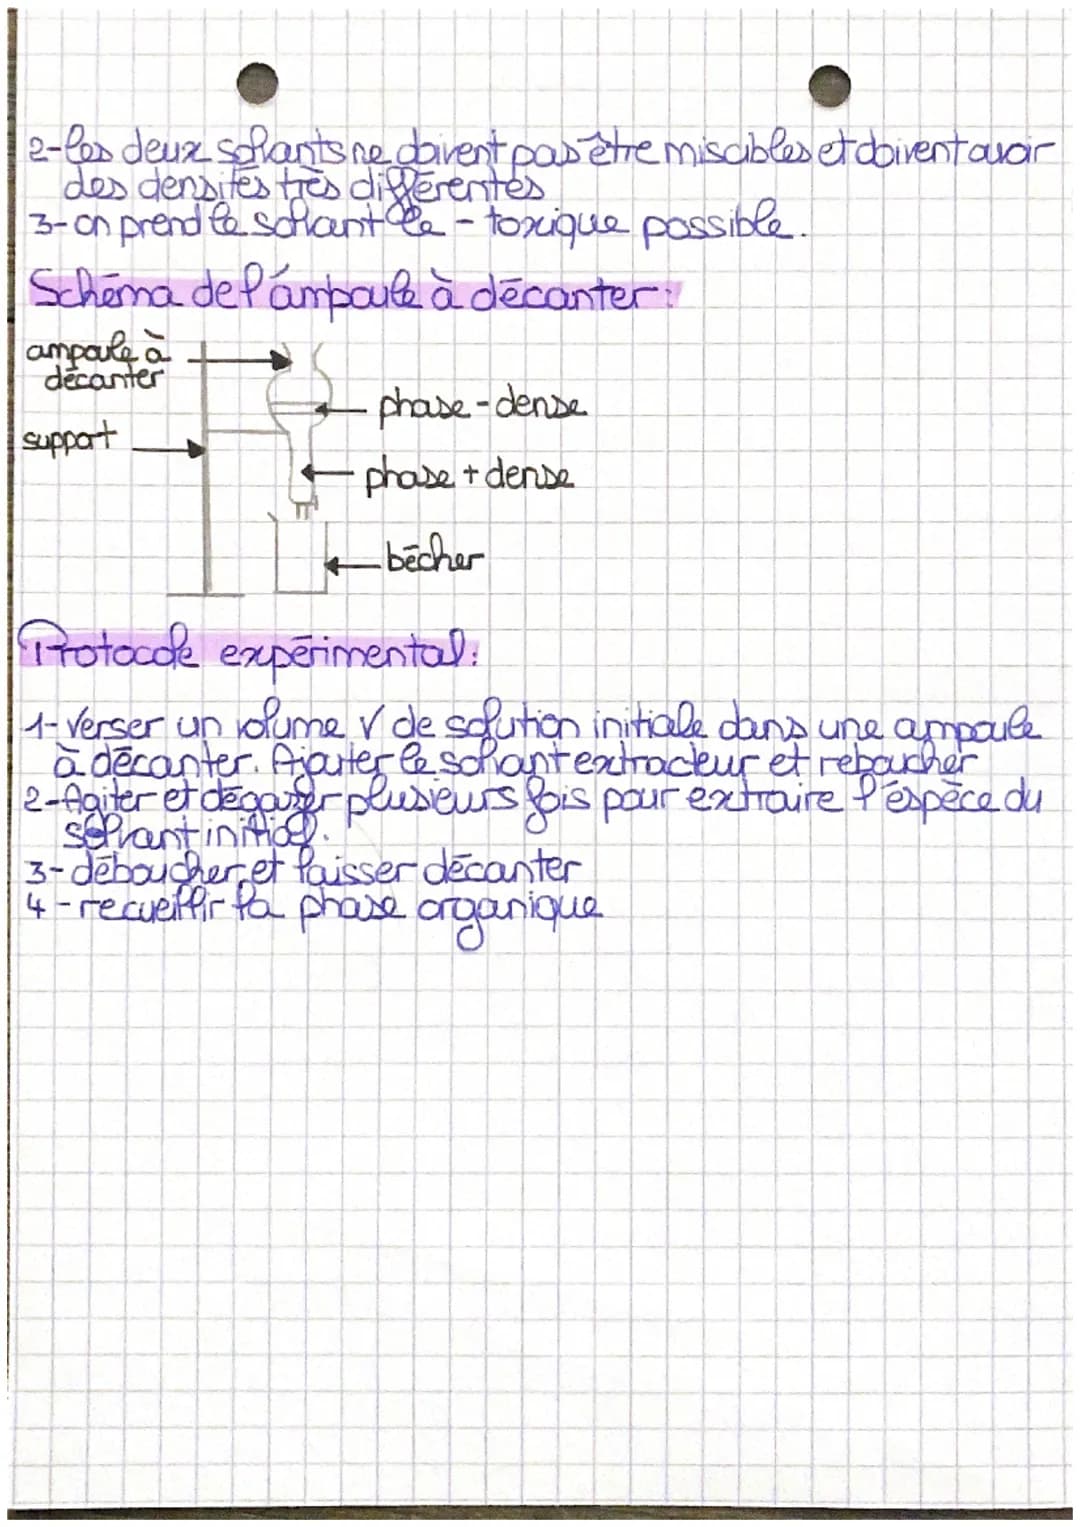 2-les deux solvants ne doivent pas être miscibles et doivent avoir
des densités très différentes
3-on prend le solvant le - toxique possible.
Schéma de l'ampoule à décanter:
ampoule à
décanter
phase - dense
support
phase + dense
bécher
Protocole expérimental:
1-Verser un volume V de solution initiale dans une ampoule
à décanter. Ajouter le solvant extracteur et reboucher
2-Agiter et dégazer plusieurs fois pour extraire l'espèce du
solvant initial.
3-déboucher et laisser décanter
4-recueillir la phase organique